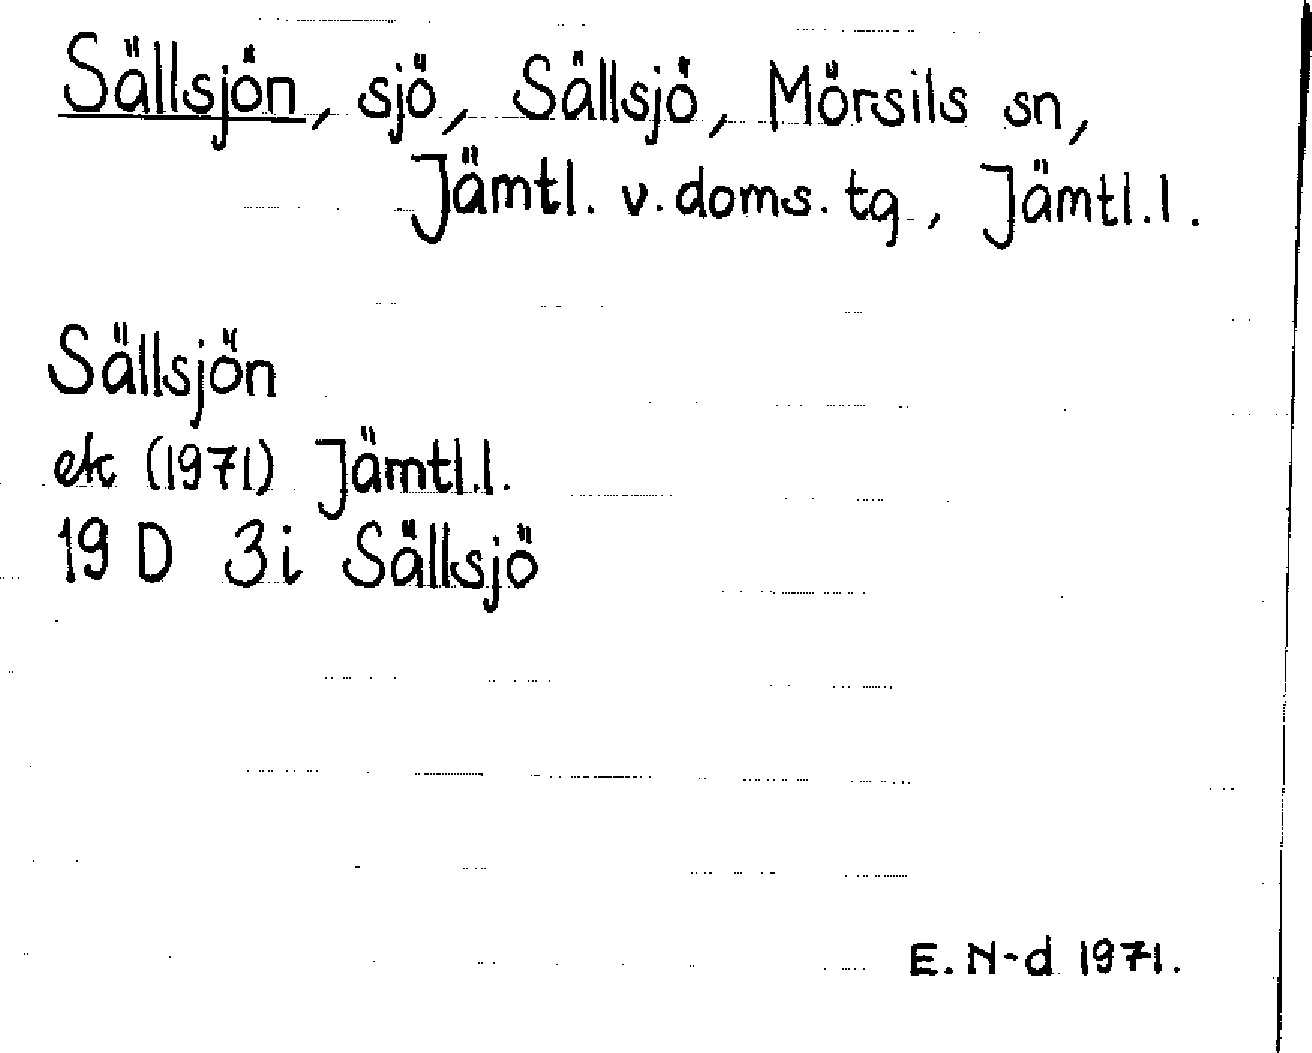 Sällsjön, sjö, Sällsjö, Mörsils sn,
Jämtl. v. doms. tg., Jämtl.l.
Sällsjön
ek (1971) Jämtl.l.
19 D 3i Sällsjö
E. N-d 1971.